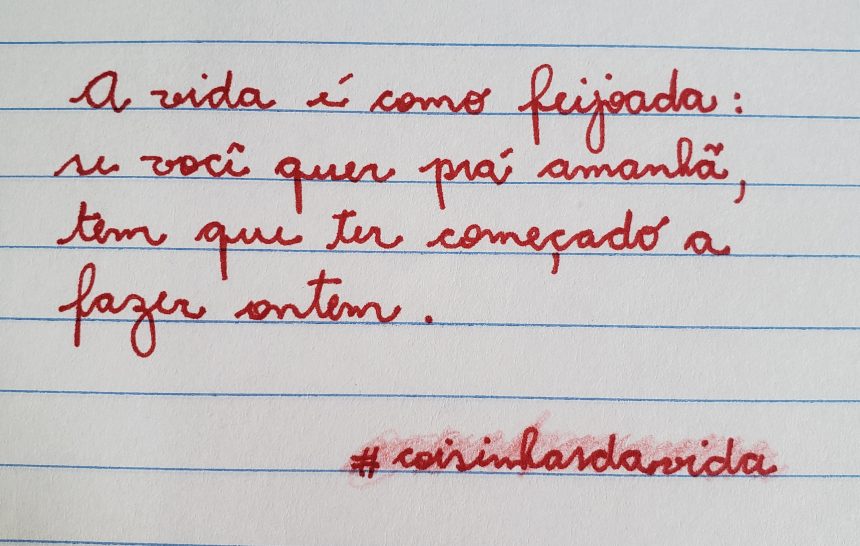 A vida é como feijoada:
se você quer prá amanhã,
tem que ter começado a
fazer ontem.
#coisinhasdavida